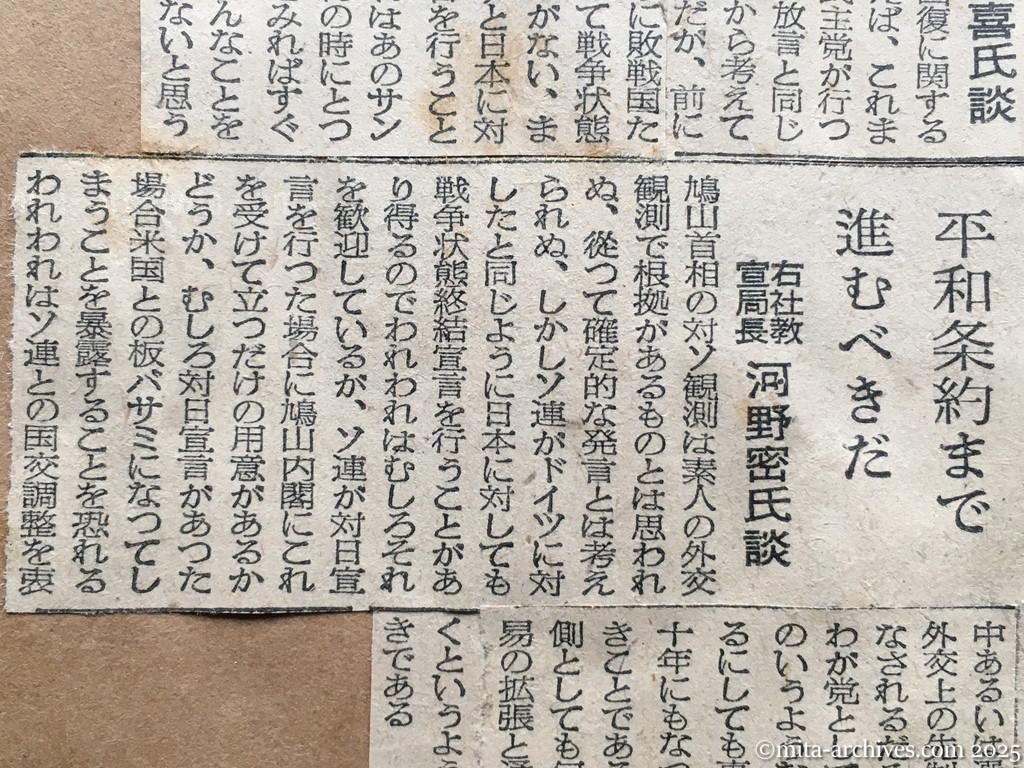 喜氏談
回復に関する
えば、これま
民主党が行つ
放言と同じ
から考えて
だが、前に
に敗戦国た
て戦争状態
がない、ま
と日本に対
を行うこと
はあのサン
の時にとつ
みればすぐ
んなことを
ないと思う
平和条約まで
進むべきだ
右社教
宣局長
河野密氏談
鳩山首相の対ソ観測は素人の外交
観測で根拠があるものとは思われ
ぬ、従つて確定的な発言とは考え
られぬ、しかしソ連がドイツに対
したと同じように日本に対しても
戦争状態終結宣言を行うことがあ
り得るのでわれわれはむしろそれ
を歓迎しているが、ソ連が対日宣
言を行つた場合に鳩山内閣にこれ
を受けて立つだけの用意があるか
どうか、むしろ対日宣言があつた
場合米国との板バサミになつてし
まうことを暴露することを恐れる
われわれはソ連との国交調整を衷
中あるいは
外交上の先制
なされるだ
わが党とし
のいうよう
るにしても
十年にもなつ
きことであ
側としても
易の拡張と
くというよう
きである
©mita-archives.com 2025